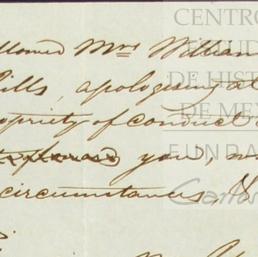 llowed Mrs William
ills, apologising at
opriety of conduct
you,
circumstances, &
CENTRO
DE HIST
DE ME
FUNDA
Carlos